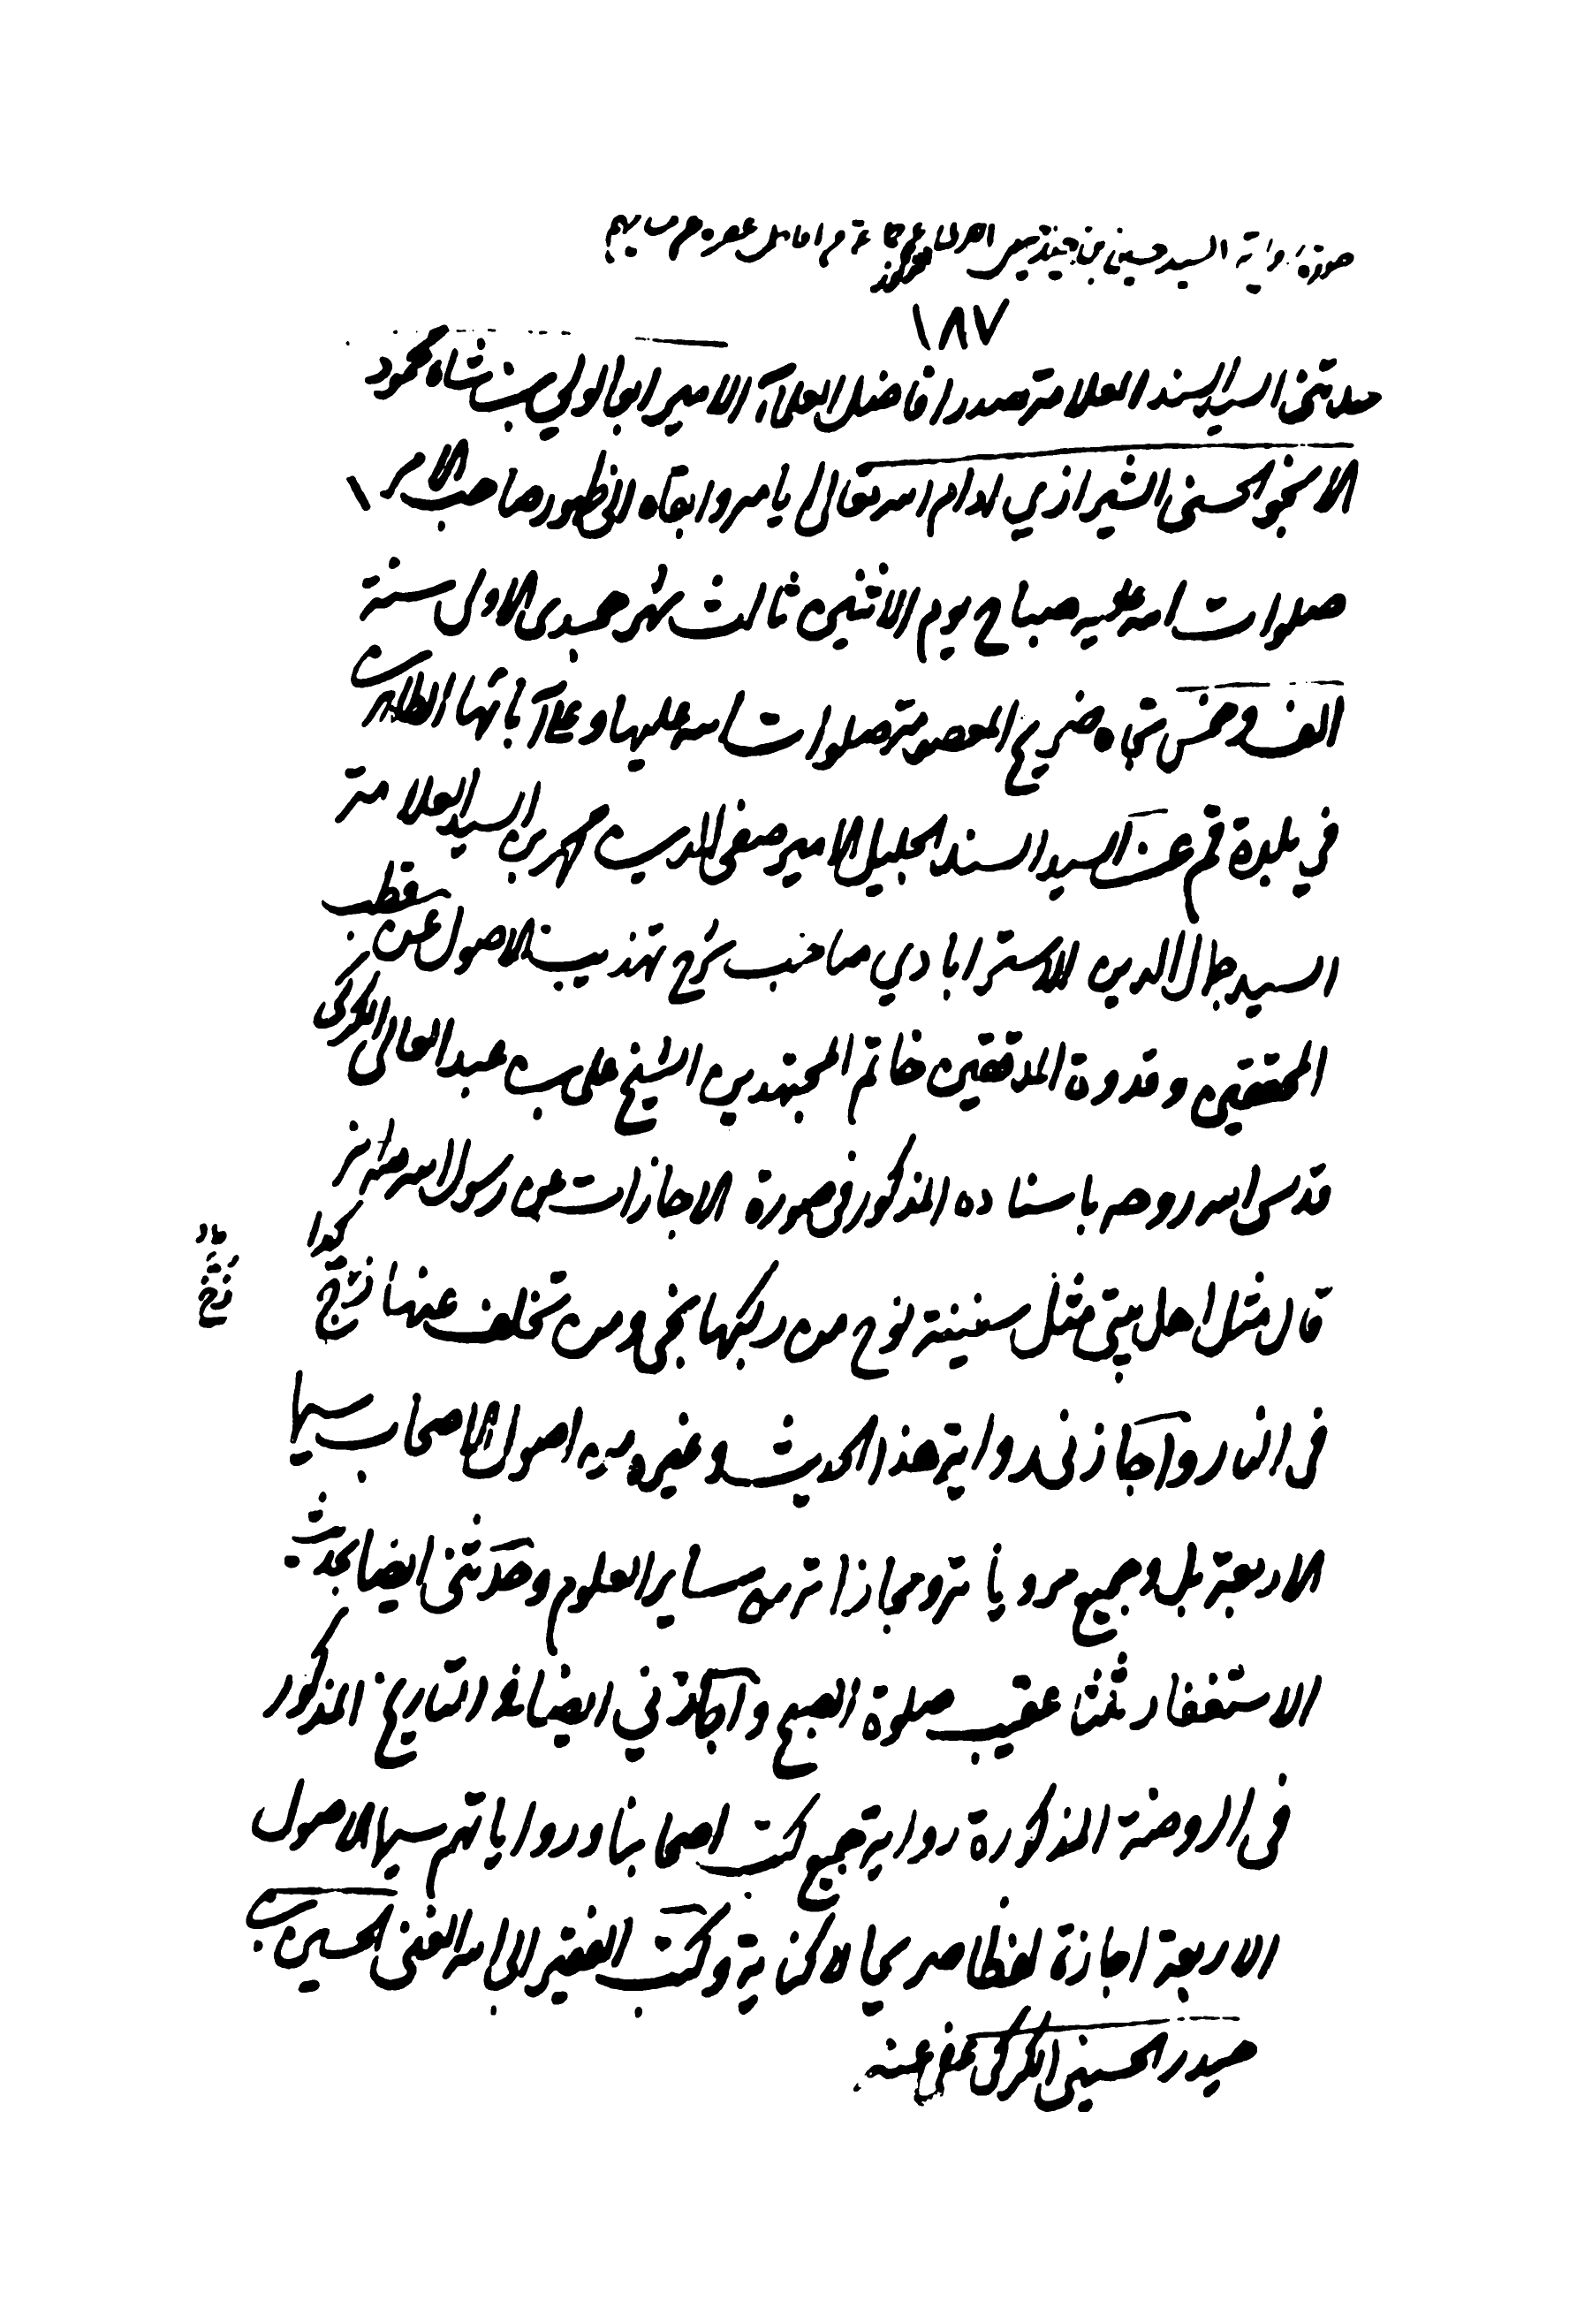 صورة رواية السيد حسين بن حيدر
١٨٧
حدثني السيد السند العلامة صدر افاضل العلمآء الامير ابو الولي بن شاه محمود
الانجو الحسني الشيرازي ادام الله تعالى ايامه وابقاه الى ظهور صاحب الامر
صلوات الله عليه صباح يوم الاثنين ثالث شهر جمدى الاولى سنة
الف وخمس تجاه ضريح المعصومة صلوات الله عليها وعلى آبائها الطاهرين
في بلدة قم عن السيد السند الجليل الامير صفى الدين محمد بن السيد العلامة
السيد جمال الدين الاسترابادي صاحب شرح تهذيب الاصول عن قطب
المحققين وقدوة المدققين خاتم المجتهدين الشيخ على بن عبد العالى الكركى
قدس الله روحه باسناده المذكور في صورة الاجازات عن رسول الله انه
قال مثل اهل بيتي مثل سفينة نوح من ركبها نجى ومن تخلف عنها زج
كذا
زخ
فى النار وآجازنى رواية هذا الحديث وغيره من اصول الاصحاب سيما
الاربعة بل وجميع مروياته ومجازاته من ساير العلوم وحدثنى ايضا بحديث
الاستغفار ثلثا عقيب صلوة الصبح وآجازني ايضا في التاريخ المذكور
فى الروضة المذكورة رواية جميع كتب اصحابنا ورواياتهم سيما الاصول
الاربعة اجازة لفظا صريحا لا كناية وكتب الفقير الى الله الغنى الحسين بن
حيدر الحسيني الكركى عفى عنه